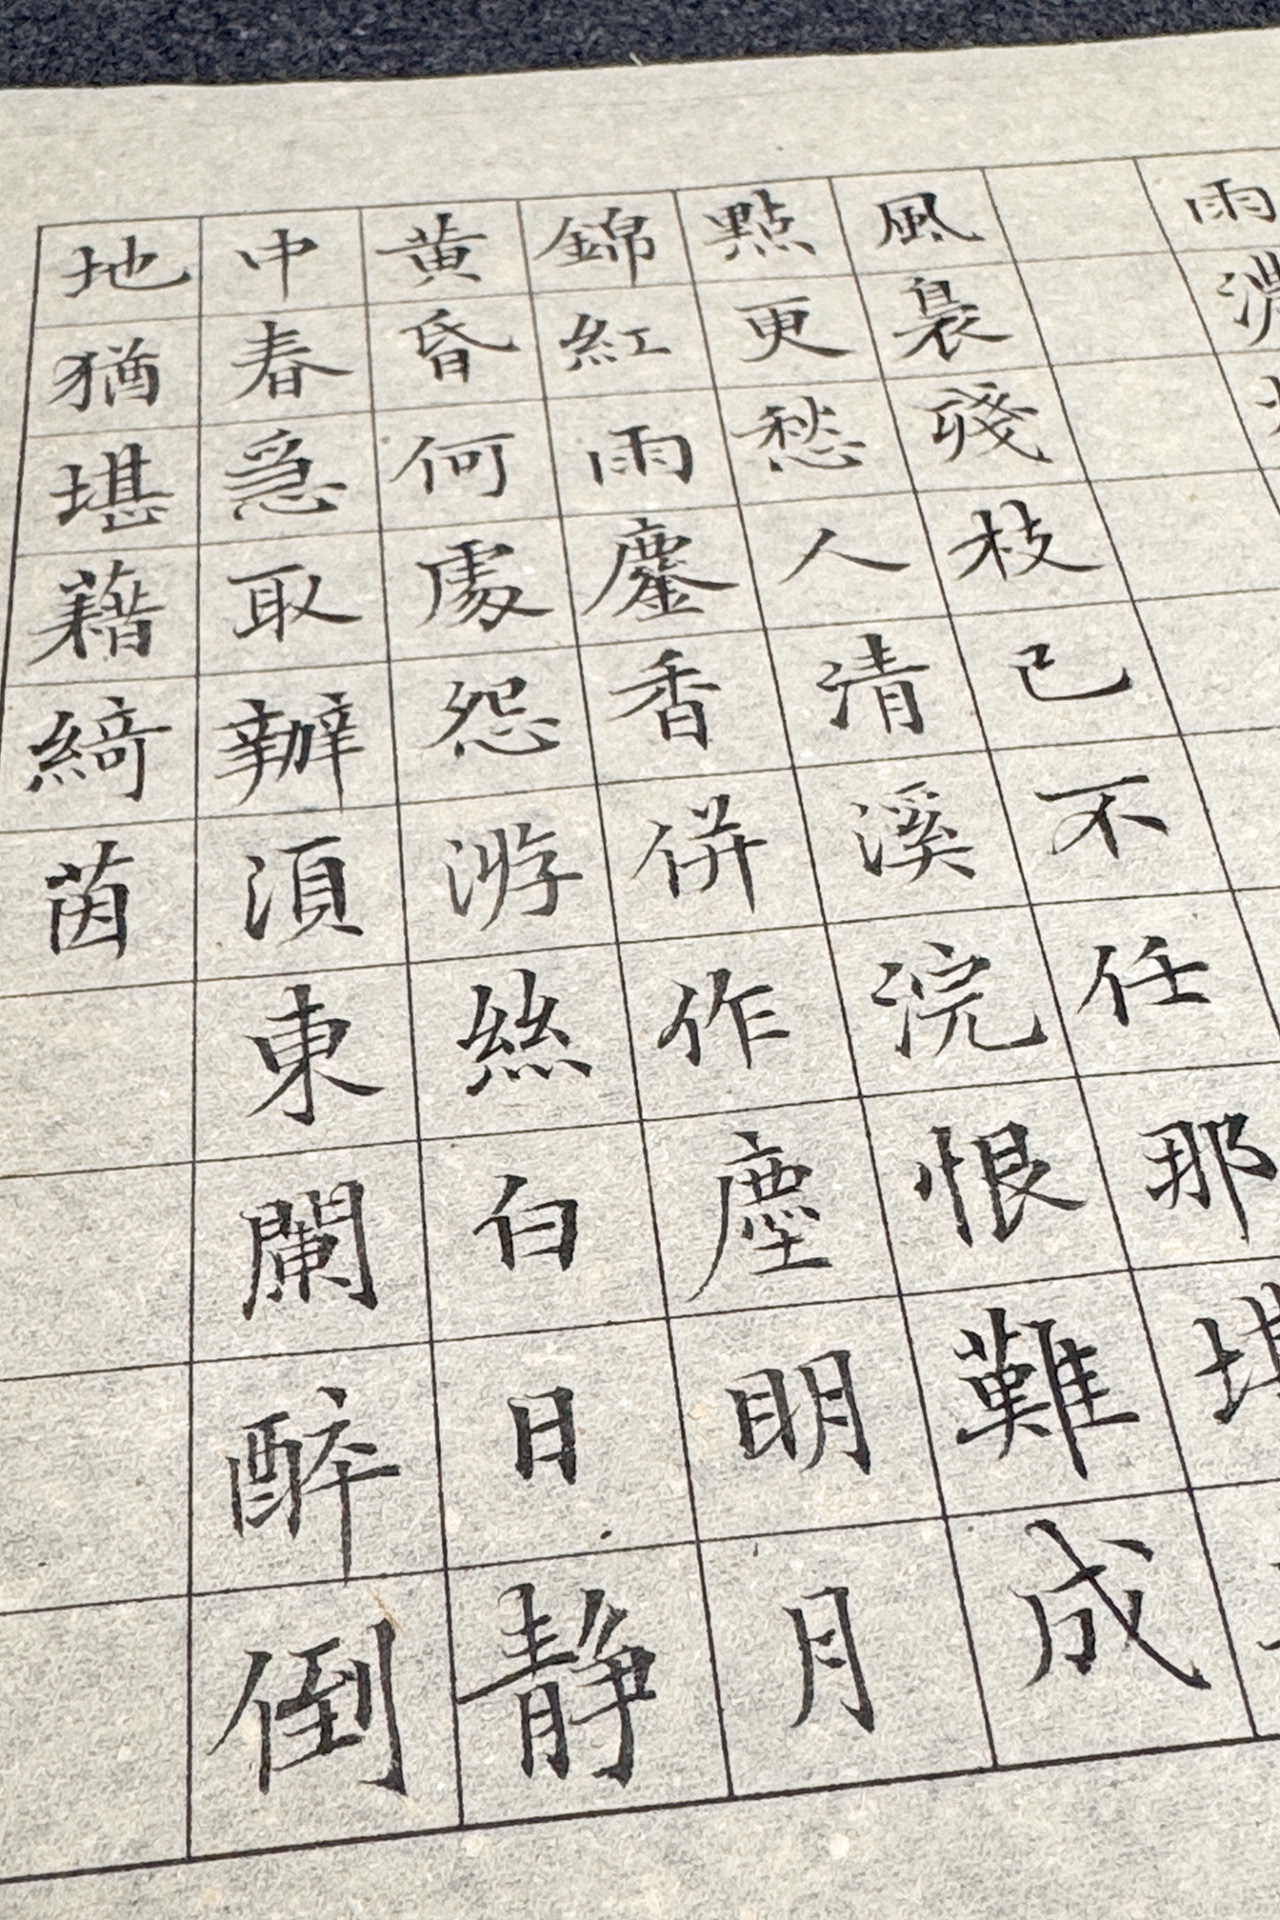 雨
風裊殘枝已不任那堪
點更愁人清溪浣恨難成
錦紅雨鏖香併作塵明月
黄昏何處怨游絲白日静
中春急取辦湏東闌醉倒
地猶堪藉綺茵